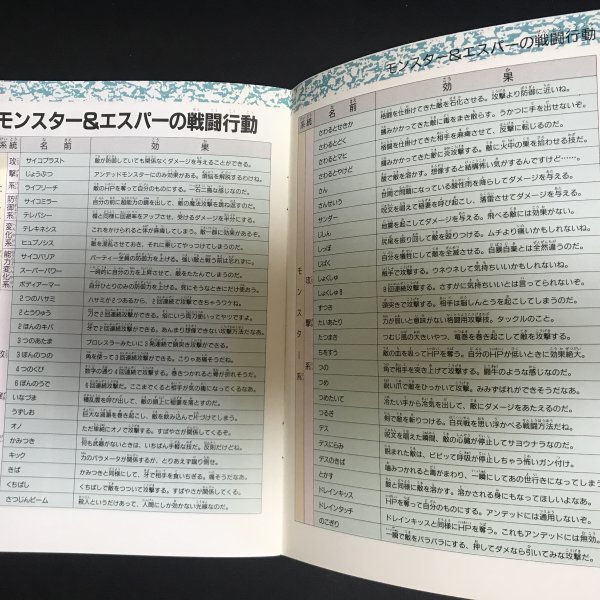 モンスター&エスパーの戦闘行動
系統 名前 効果
サイコブラスト 敵が防御していても関係なくダメージを与えることができる。
じょうぶつ アンデッドモンスターにのみ効果がある。煩悩を解脱するわけね。
ライフリーチ 敵のHPを奪って自分のものにする。一石二鳥な感じなのだ。
サイコミラー 自分の前に超能力の鏡を出して、敵の魔法攻撃を跳ね返すのだ。
テレパシー
テレキネシス これをかけられると体が麻痺してしまう。敵一群に効果あり。
ヒュプノシス 敵を混乱させておき、それに乗じてやっつけてしまうのだ。
サイコバリア パーティー全員の防御力を上げる。強い敵と戦う前は忘れずに。
スーパーパワー 一時的に自分の力を上昇させて、敵をたたんでしまうのだ。
ボディアーマー 自分ひとりのみの防御力を上げる。気にそうなときにだけ使おう。
2つのハサミ ハサミが2つあるから、2回連続攻撃できちゃうワケね。
2とうりゅう 刀で2回連続攻撃ができる。俗にいう両刀使いってヤツだね。
2ほんのキバ 牙で2回連続攻撃ができる。あんまり想像できない攻撃方法だなあ。
3つのあたま プロレスラーみたいに3発連続で頭突き攻撃ができる。
3ぼんのつの 角を使って3回連続攻撃ができる。こりゃあ痛そうだね。
4つのくび 数字の通り4回連続攻撃する。巻きつかれると骨が折れそうだ。
8ぽんのうで 8回連続攻撃だ。ここまでくると相手が気の毒になってくるなあ。
いなづま 積乱雲を呼び出して、敵の頭上に稲妻を落とすのだ。
うずしお 巨大な渦潮を巻き起こし、敵を飲み込んで片づけてしまう。
オノ ただ単純にオノで攻撃する。すばやさが関係してくるぞ。
かみつき 何も武器がないときは、いちばん手軽な技だ。反則だけどね。
キック 力のパラメータが関係するが、とりあえず蹴り倒せ。
きば かみつきと同様にして、牙で相手を食いちぎる。痛そうだなあ。
くちばし くちばしで敵をつついて攻撃する。すばやさが関係してくる。
さつじんビーム 殺人というだけあって、人間にしか効かない光線なのだ。
モンスター&エスパーの戦闘行動
系統 名前 効果
さわるとせきか 格闘を仕掛けてきた敵を石化させる。攻撃より防御に近いね。
さわるとどく 掴みかかってきた敵に毒をまき散らす。うかつに手を出せないぞ。
さわるとマヒ 格闘を仕掛けてきた相手を麻痺させて、反撃に転じるのだ。
さわるとやけど 掴みかかってきた敵に炎攻撃する。敵に火中の栗を拾わせる技だ。
さん 酸で敵を溶かす。想像すると結構怖い気がするんですけど……。
さんせいう 世間で問題になっている酸性雨を降らしてダメージを与える。
サンダー 呪文を唱えて稲妻を呼び起こし、落雷させてダメージを与える。
じしん 地震を起こしてダメージを与える。飛べる敵には効果がない。
しっぽ 尻尾を振り回して敵を殴りつける。ムチより痛いかもしれないね。
じばく 自分を犠牲にして敵を全滅させる。自暴自棄とは全然違うのだ。
しょくしゅ 相手で攻撃する。ウネウネして気持ちいいかもしれないね。
しょくしゅ8 8回連続攻撃する。さすがに気持ちいいとは言ってられないぞ。
ずつき 頭突きで攻撃する。相手は脳しんとうを起こしてしまうのだ。
たいあたり 力が弱いと意味がない格闘用攻撃技。タックルのこと。
たつまき つむじ風の大きいやつ、竜巻を巻き起こして敵を攻撃する。
ちをすう 敵の血を吸ってHPを奪う。自分のHPが低いときに効果絶大。
つの 角で相手を突き上げて攻撃する。闘牛のような感じなのだ。
つめ 鋭い爪で敵をひっかいて攻撃。みみずばれができそうだなあ。
つめたいて 冷たい手から冷気を出して、敵にダメージをあたえるのだ。
つるぎ 剣で敵を斬りつける。白兵戦を思い浮かべる戦闘方法だね。
デス 呪文を唱えた瞬間、敵の心臓が停止してサヨウナラなのだ。
デスにらみ 睨まれた敵は、ビビって呼吸が停止しちゃう怖いガン付け。
デスのきば 噛みつかれると毒がまわり、一瞬にしてあの世行きになっちゃう。
とかす 酸と同様に敵を溶かす。溶かされる身にもなってほしいよなあ。
ドレインキッス HPを奪って自分のものにする。アンデッドには通用しないぞ。
ドレインタッチ ドレインキッスと同様にHPを奪う。これもアンデッドには無効。
のこぎり 一瞬で敵をバラバラにする、押してダメなら引いてみな攻撃だ。